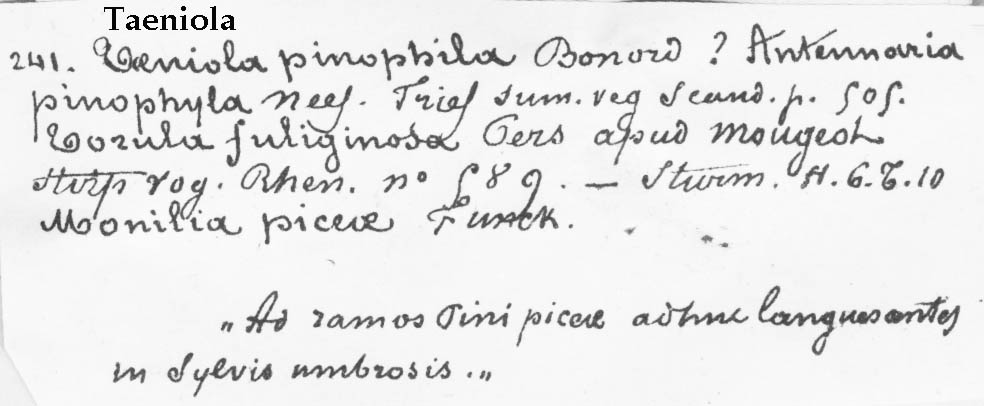 Taeniola
241. Tæniola pinophila Bonord ? Antennaria
pinophyla Nees. Fries sum. veg Scand. p. 505.
Torula fuliginosa Pers apud Mougeot
stirp vog. Rhen. n° 589. — Sturm. H. 6. T. 10
Monilia piceæ Funck.
"Ad ramos Pini piceæ adhuc languesantes
in Sylvis umbrosis."